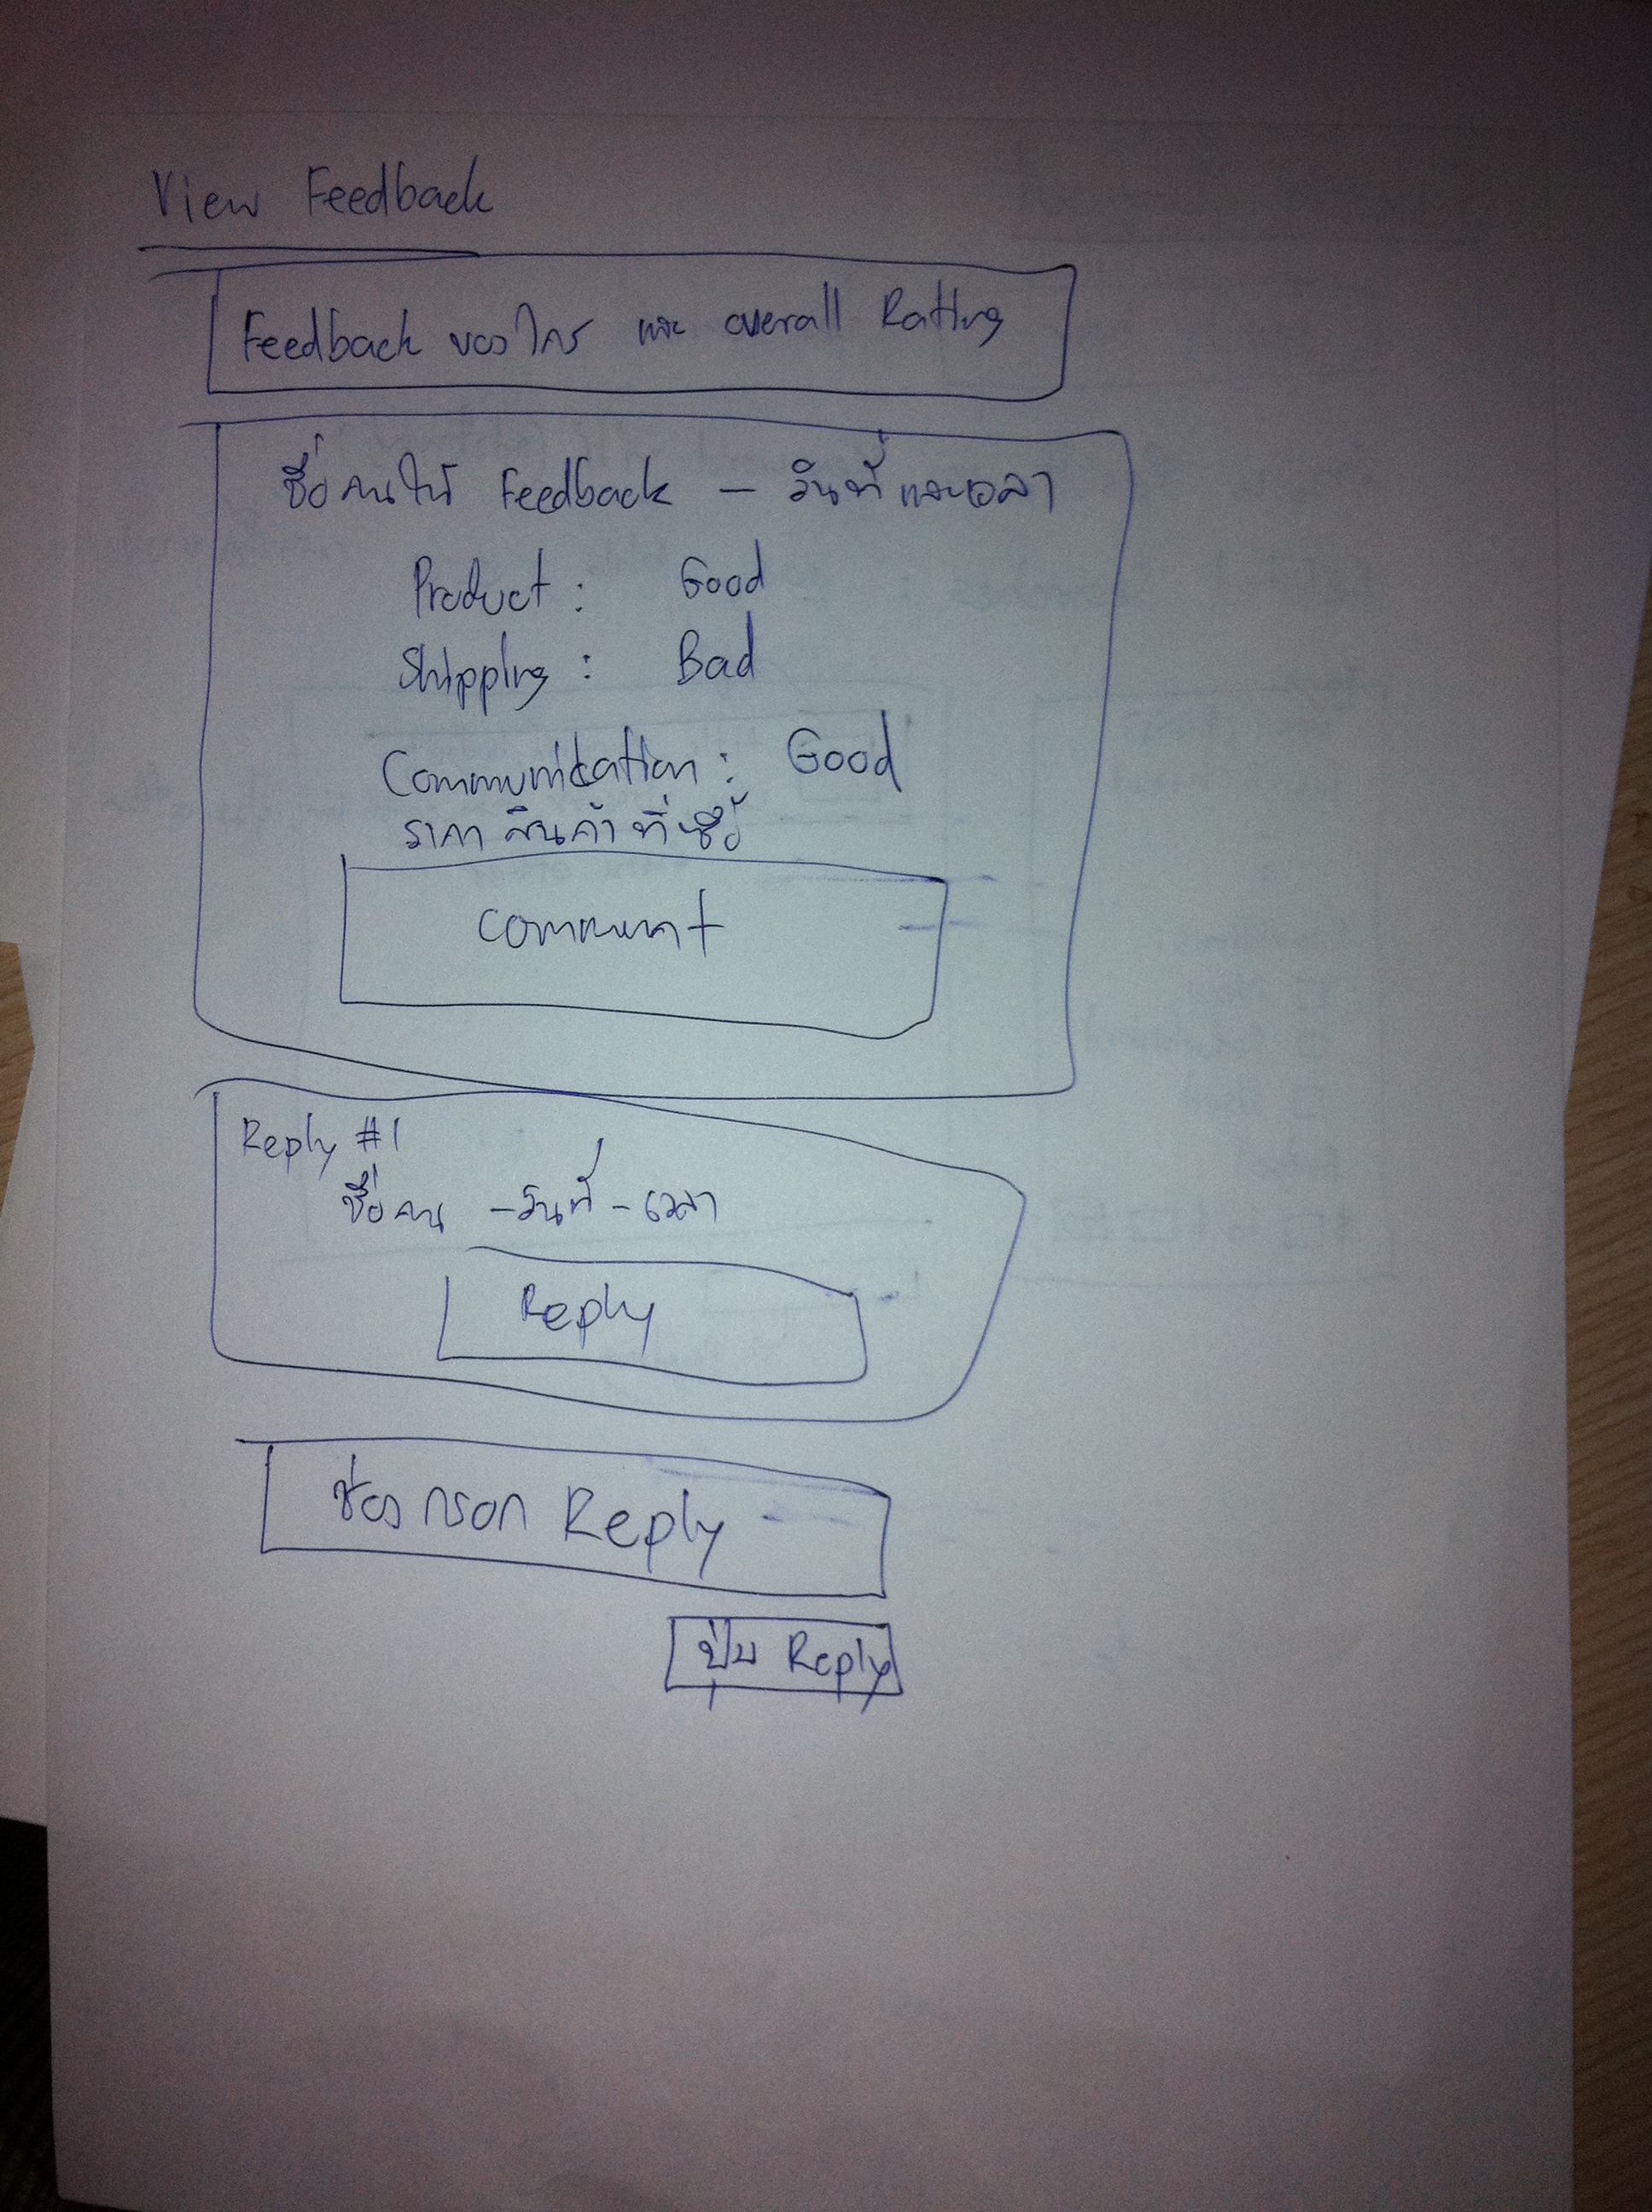 View Feedback
Feedback ของใคร และ overall Ratting
ชื่อคนให้ Feedback - วันที่ และเวลา
Product : Good
Shipping : Bad
Communication : Good
ราคา สินค้า ที่ซื้อ
comment
Reply #1
ชื่อคน - วันที่ - เวลา
Reply
ช่องกรอก Reply
ปุ่ม Reply